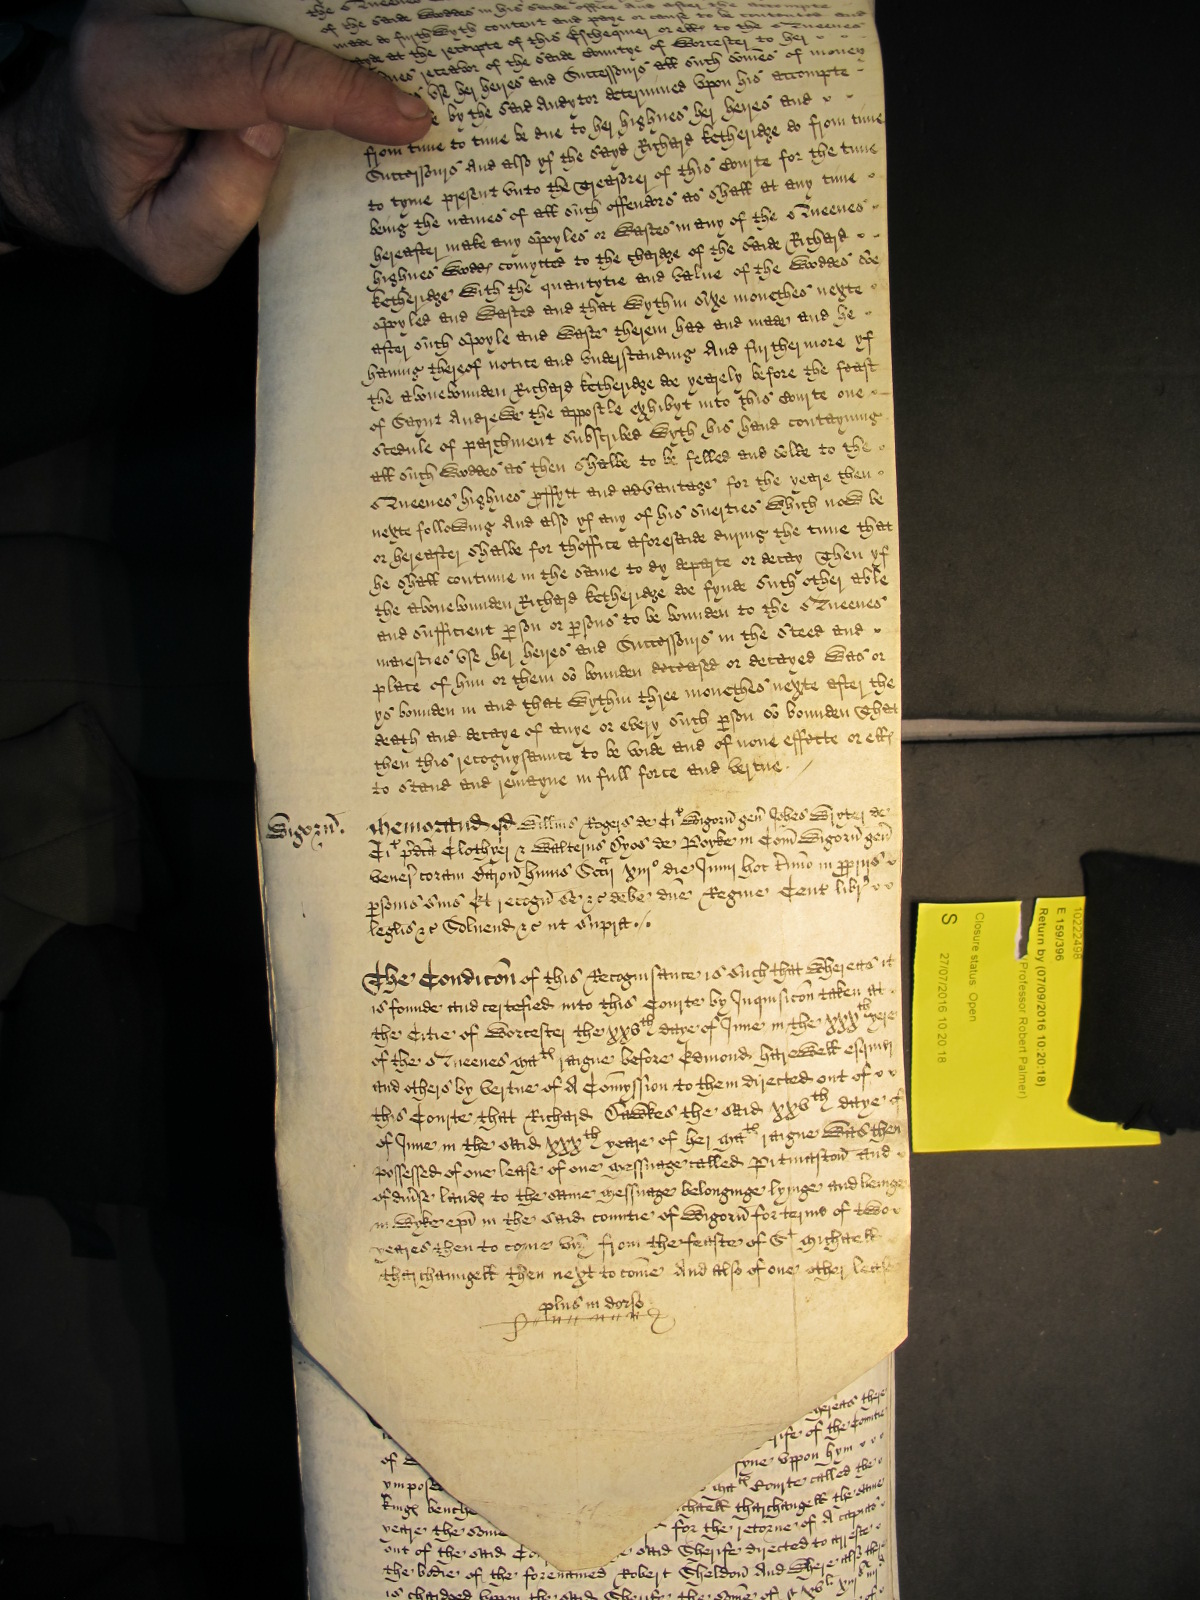 the Queenes
of the saide Woddes in his saide office and after the accompte
made do furthwyth content and paye or cause to be contented and
at the receipte of this Eschequier or ells to the Queenes
receavor of the saide Countye of Worcester to her
use her heires and Successours all such somes of money
by the said Audytor determined upon his accompte
from tyme to tyme be due to her highnes her heires and
Successours And also yf the sayd Richard Ketheridge do from tyme
to tyme present unto the Treasorer of this Courte for the tyme
being the names of all such offendors as shall at any tyme
hereafter make any Spoyles or Wastes in any of the Queenes
highnes Wodds comytted to the chardge of the saide Richard
Ketheridge with the quantytie and value of the Woddes soe
spoyled and Wasted and that Wythin sixe monethes nexte
after such spoyle and Waste therein had and made and he
having thereof notice and understanding And furthermore yf
the abovebounden Richard Ketheridge doe yerely before the feast
of Saynt Andrewe the appostle exhibyt into this Courte one
scedule of parchment subscribed Wyth his hand contayning
all such Woddes as then shalbe to be felled and solde to the
Queenes highnes proffytt and advantage for the yeare then
nexte following And also yf any of his suerties Which now be
or hereafter shalbe for thoffice aforesaide during the time that
he shall contynue in the same to dy departe or decay Then yf
the abovebounden Richard Ketheridge doe fynde such other able
and sufficient pson or psons to be bounden to the Queenes
maiesties use her heires and Successours in the steed and
place of him or them so bounden deceased or decayed Was or
ys bounden in and that Wythin three monethes nexte after the
death and decaye of anye or every such pson so bounden That
then this recognysaunce to be voide and of none effecte or ells
to stand and remayne in full force and vertue
Wigorn.
Memorand qd Willms Rogers de Cit Wigorn gen Johes Wryter de
Cit pdca Clothyer & Walterus Oyos de Powke in Com Wigorn gen
vener coram Baron huius Sccii xviijo die Junii hoc Anno in propriis
psonis suis Et recogn se &c debe dne Regine Cent libr
leglis &c Solvend &c ut supra
The Condicon of this Recognisance is such that Whereas it
is founde and certefied into this Courte by Inquisicon taken at
the Citie of Worcester the xxvth daye of June in the xxxth yere
of the Queenes Matts raigne before Edmond Harewell esquier
and others by vertue of A Comyssion to them directed out of
this Courte that Richard Hawkes the said xxvth daye of
of June in the said xxxth yeare of her Matts raigne Was then
possessed of one lease of one messuage called Pitmaston and
of divse lands to the same messuage belonginge lyinge and beinge
in Wyke epi in the said countie of Wigorn for terme of two
yeares then to come viz from the feaste of St Michaell
tharchaungell then next to come And also of one other lease
plus in dorso
Whereas there
of the Comtie
of
uppon hym
ympos
Matts Courte called the
Kings benche
Michaell tharchangell the same
yeare the same
for the retorne of A capias
out of the said Co
said Sherife directed to arreste
the bodie of the forenamed Robert Sheldon And Where also the
is chardged uppon the said Sherife the some of
10222498
E 159/396
Return by (07/09/2016 10:20:18)
Professor Robert Palmer)
Closure status: Open
S 27/07/2016 10:20:18